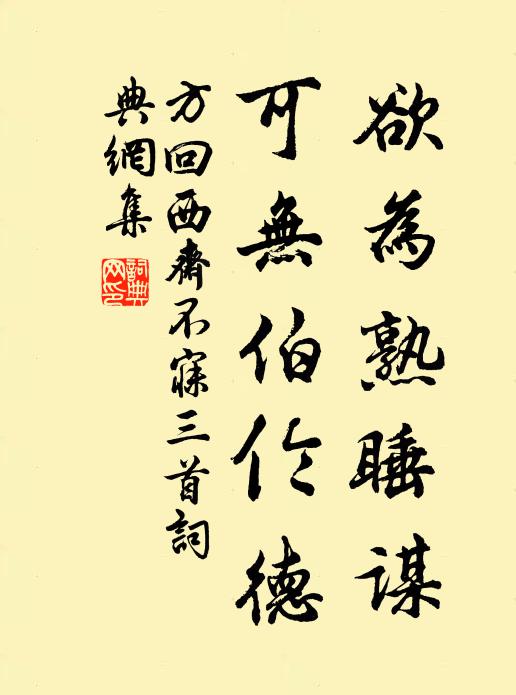 欲為熟睡謀
可無伯伶德
方回西齋不寐三首詞
典網集
詞典网印